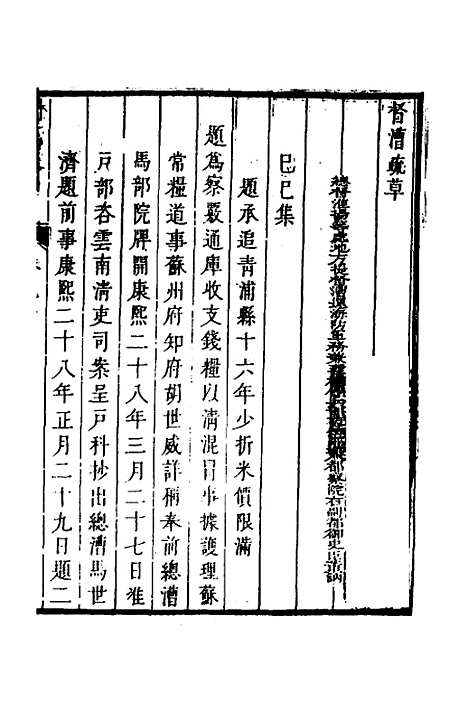 督漕疏草
總督淮揚等處地方提督漕運海防軍務兼都察院右副都御史
巳巳集
題承追青浦縣十六年少折米價限滿
題爲察覈通庫收支錢糧以清混冒事據護理蘇
常糧道事蘇州府知府胡世威詳稱奉前總漕
馬部院牌開康熙二十八年三月二十七日准
戸部咨雲南清吏司案呈戸科抄出總漕馬世
濟題前事康熙二十八年正月二十九日題二